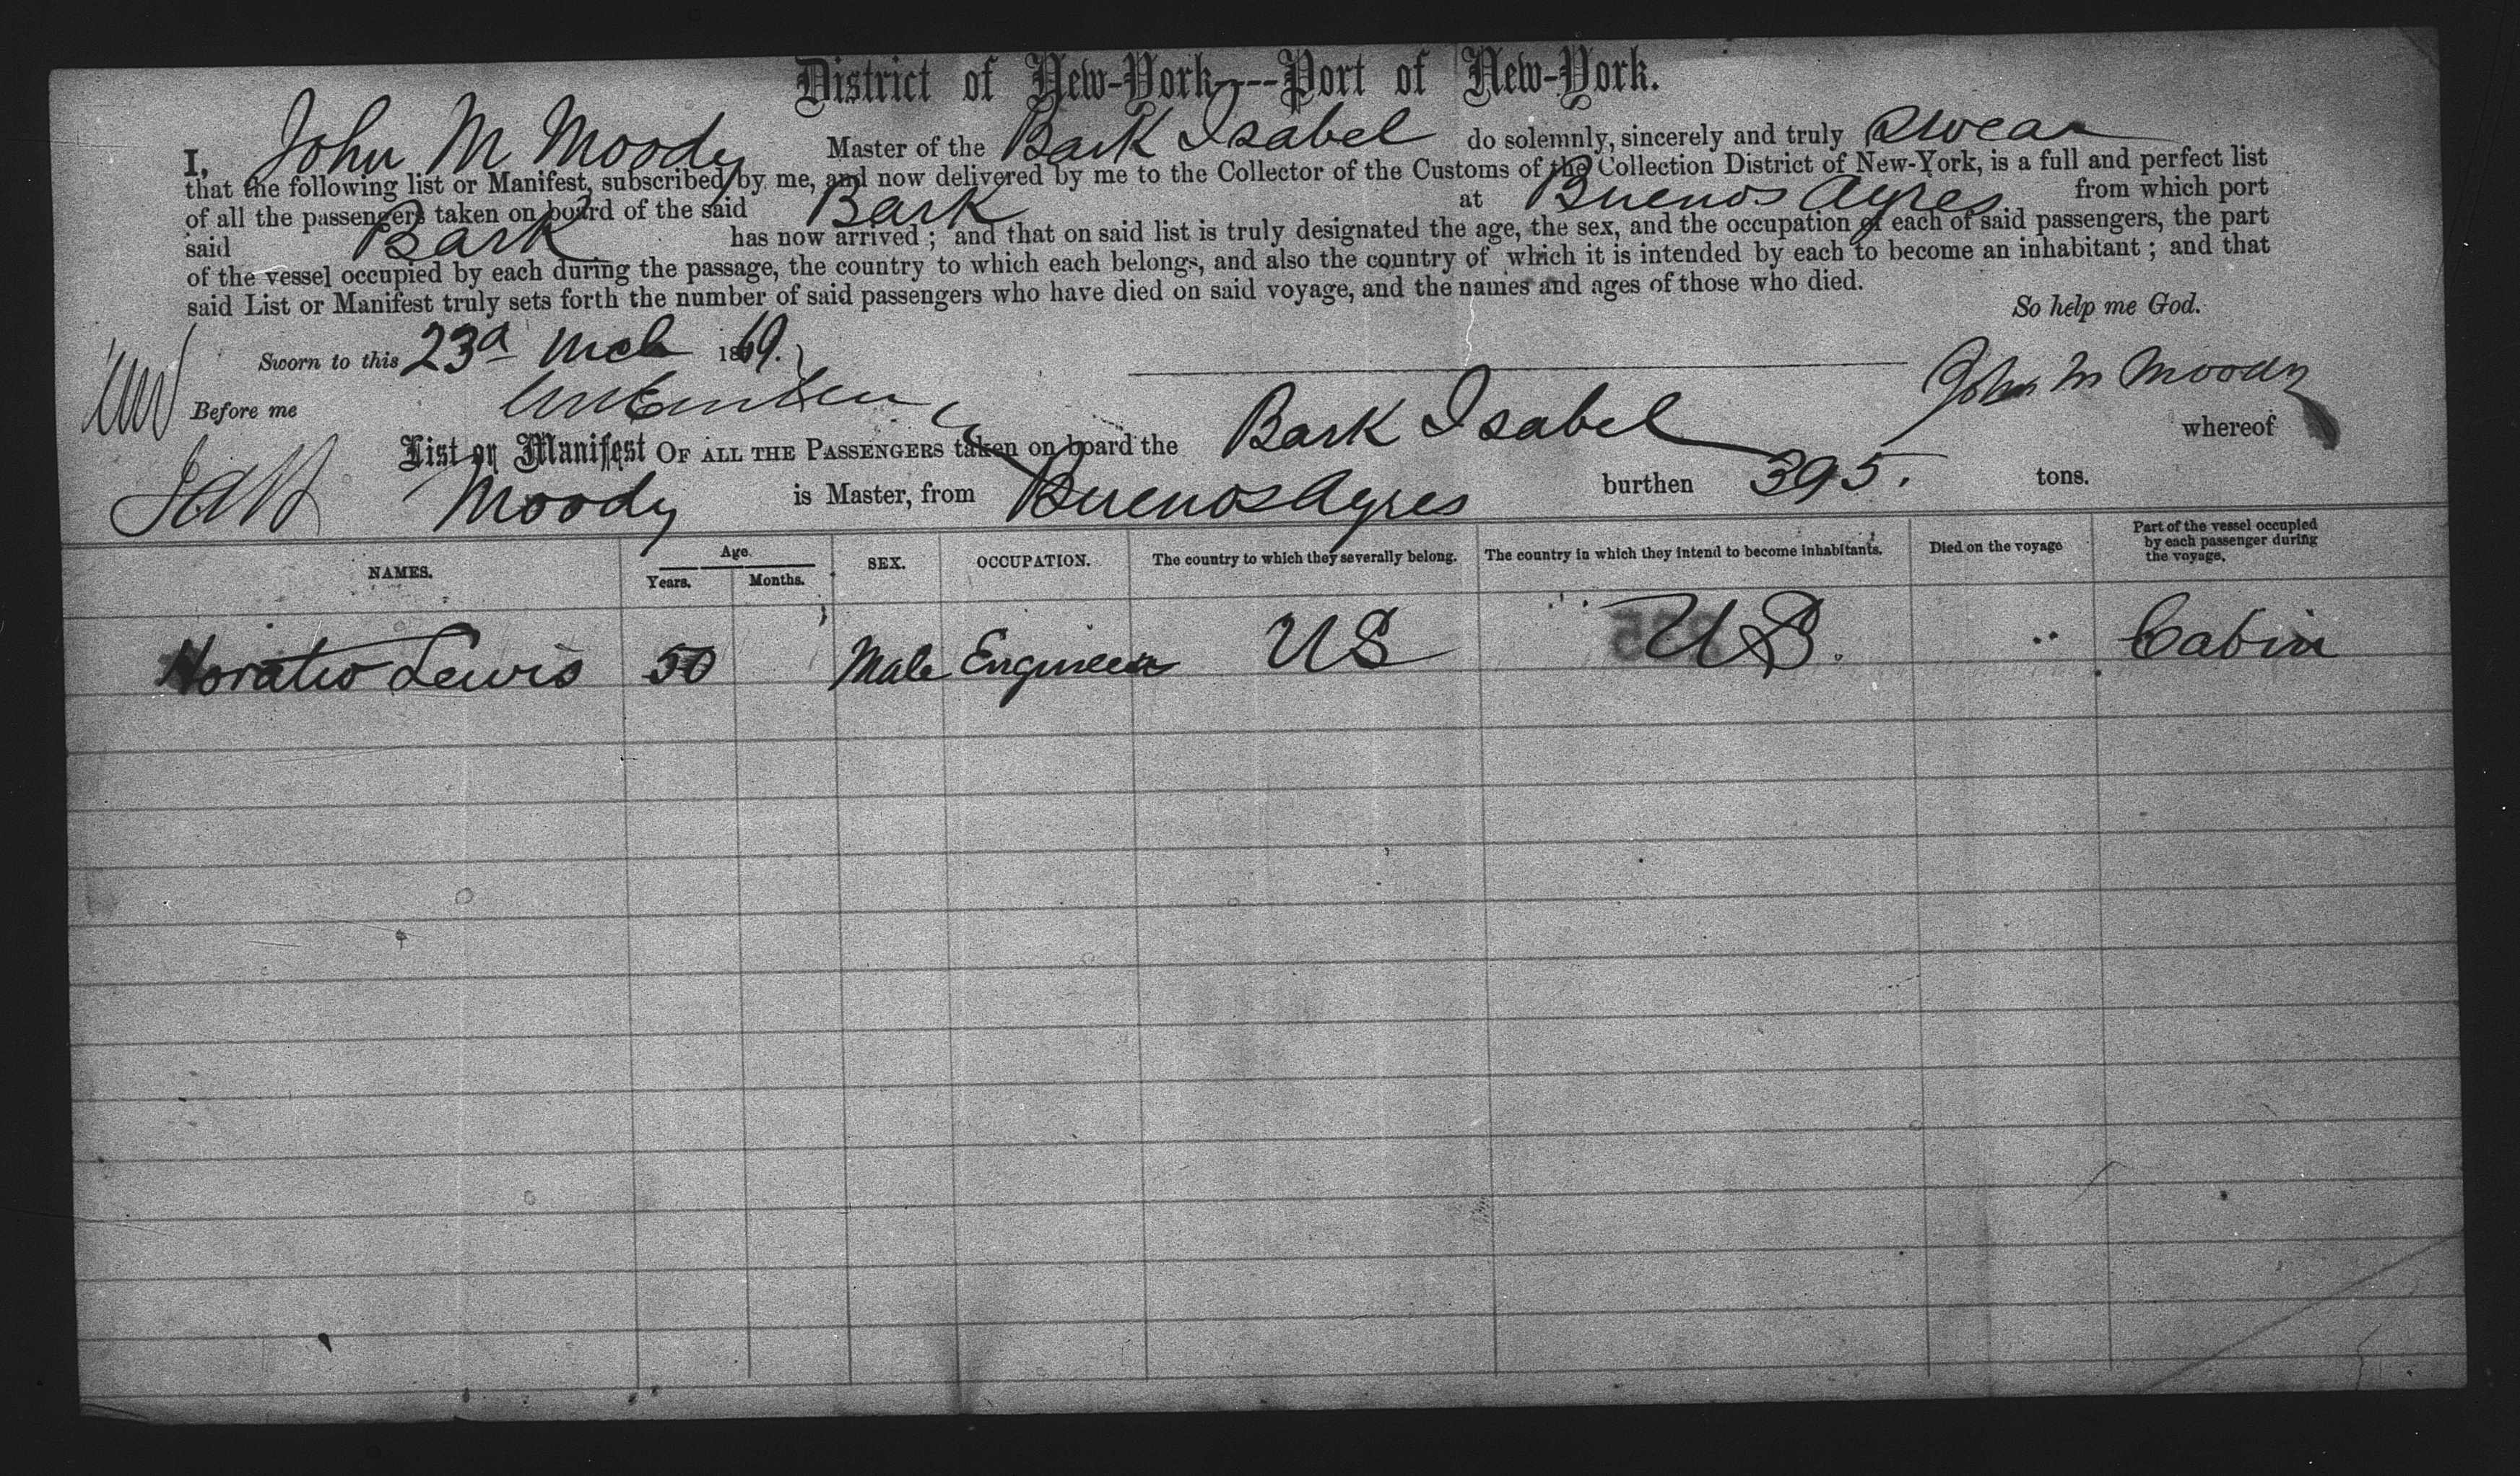 District of New-York---Port of New-York.
I, John M Moody Master of the Bark Isabel do solemnly, sincerely and truly swear
that the following list or Manifest, subscribed by me, and now delivered by me to the Collector of the Customs of the Collection District of New-York, is a full and perfect list
of all the passengers taken on board of the said Bark at Buenos Ayres from which port
said Bark has now arrived ; and that on said list is truly designated the age, the sex, and the occupation of each of said passengers, the part
of the vessel occupied by each during the passage, the country to which each belongs, and also the country of which it is intended by each to become an inhabitant ; and that
said List or Manifest truly sets forth the number of said passengers who have died on said voyage, and the names and ages of those who died.
So help me God.
Sworn to this 23d Mch 1869.
John M Moody
Before me
List or Manifest OF ALL THE PASSENGERS taken on board the Bark Isabel whereof
Moody is Master, from Buenos Ayres burthen 395. tons.
NAMES. Age. Years. Months. SEX. OCCUPATION. The country to which they severally belong. The country in which they intend to become inhabitants. Died on the voyage Part of the vessel occupied by each passenger during the voyage.
Horatio Lewis 50 Male Engineer US US. Cabin